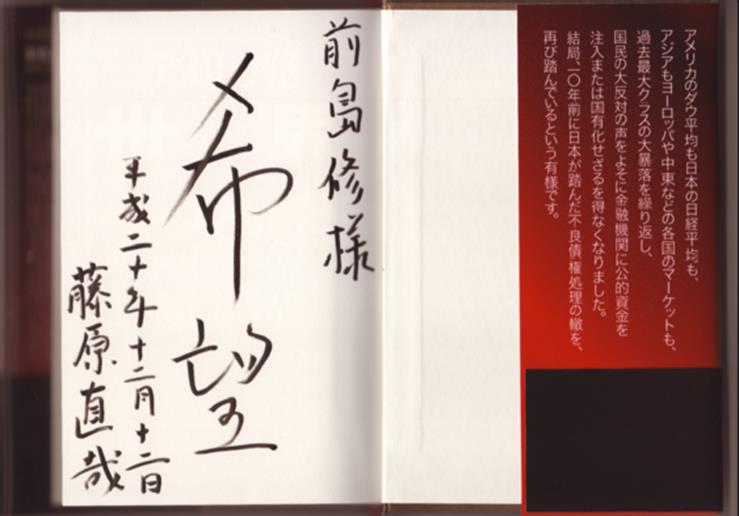 アメリカのダウ平均も日本の日経平均も、
アジアもヨーロッパや中東などの各国のマーケットも、
過去最大クラスの大暴落を繰り返し、
国民の大反対の声をよそに金融機関に公的資金を
注入または国有化せざるを得なくなりました。
結局、一〇年前に日本が踏んだ不良債権処理の轍を、
再び踏んでいるという有様です。
前島修様
希望
平成二十年十二月十二日
藤原直哉